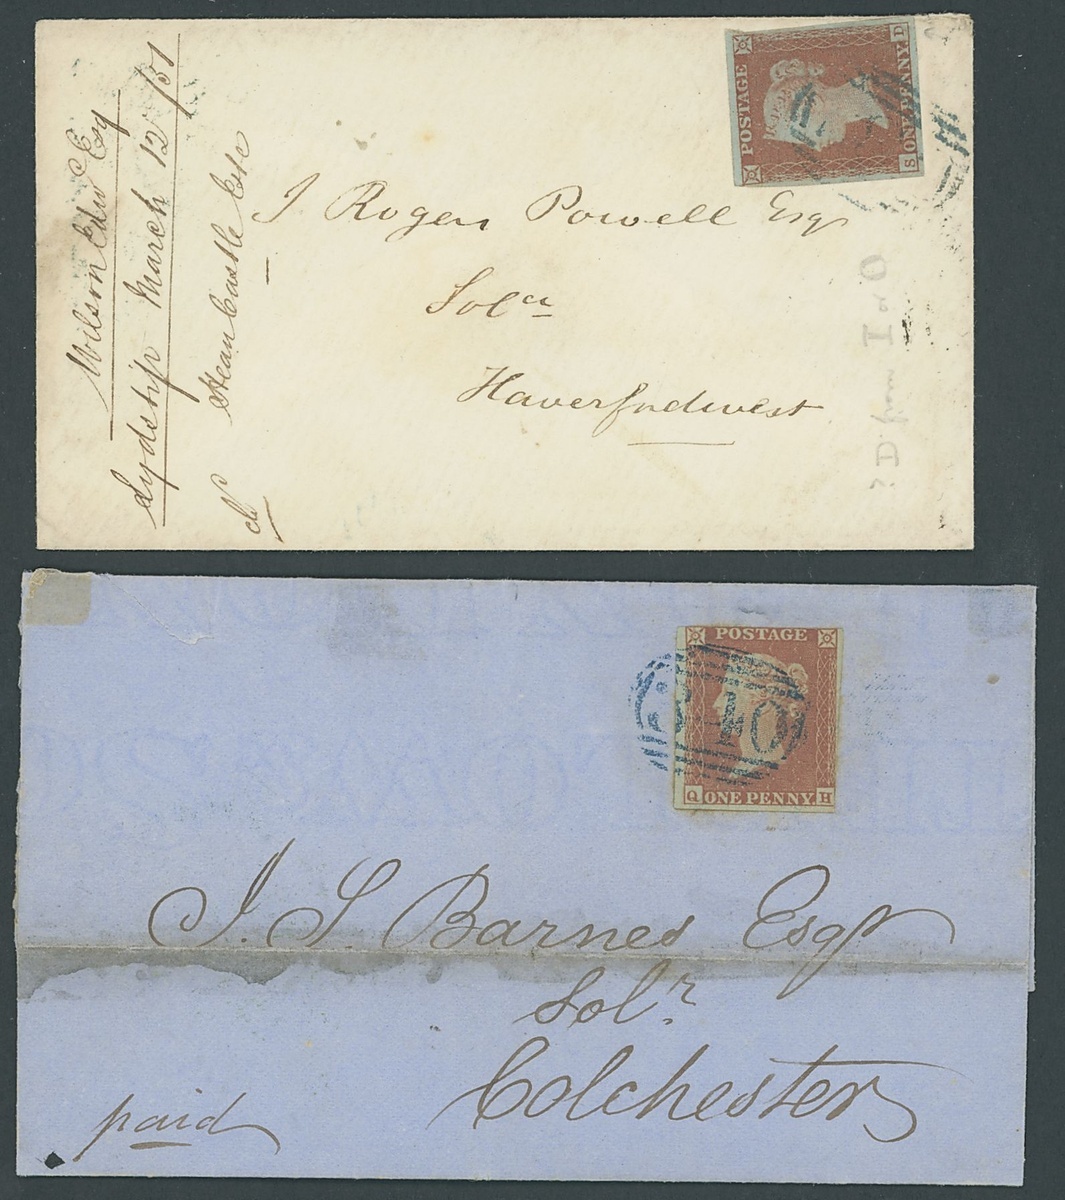 Wilson Edw Esq
Lydstip March 12 /51
Hean Castle Este
POSTAGE
ONE PENNY
S D
J Rogers Powell Esq
Solr
Haverfordwest
? D from I or O
POSTAGE
340
Q ONE PENNY H
J. S. Barnes Esqr
Solr
Colchester
paid